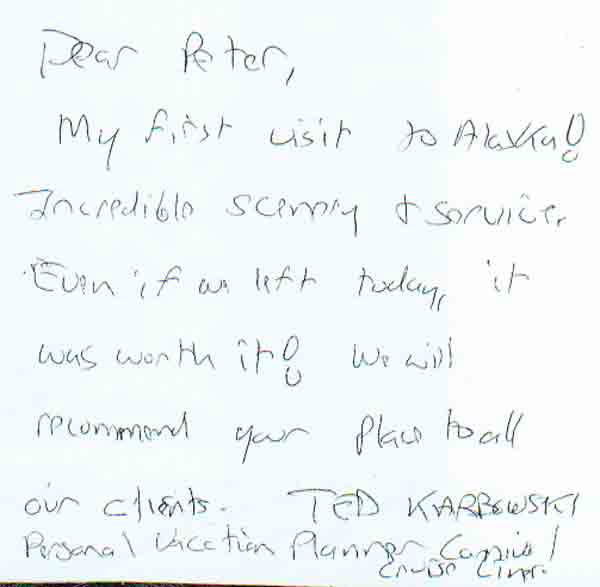 Dear Peter,
My first visit to Alaska!
Incredible scenery & service.
Even if we left today, it
was worth it! We will
recommend your place to all
our clients. TED KARBOWSKI
Personal Vacation Planner Carnival
Cruise Lines